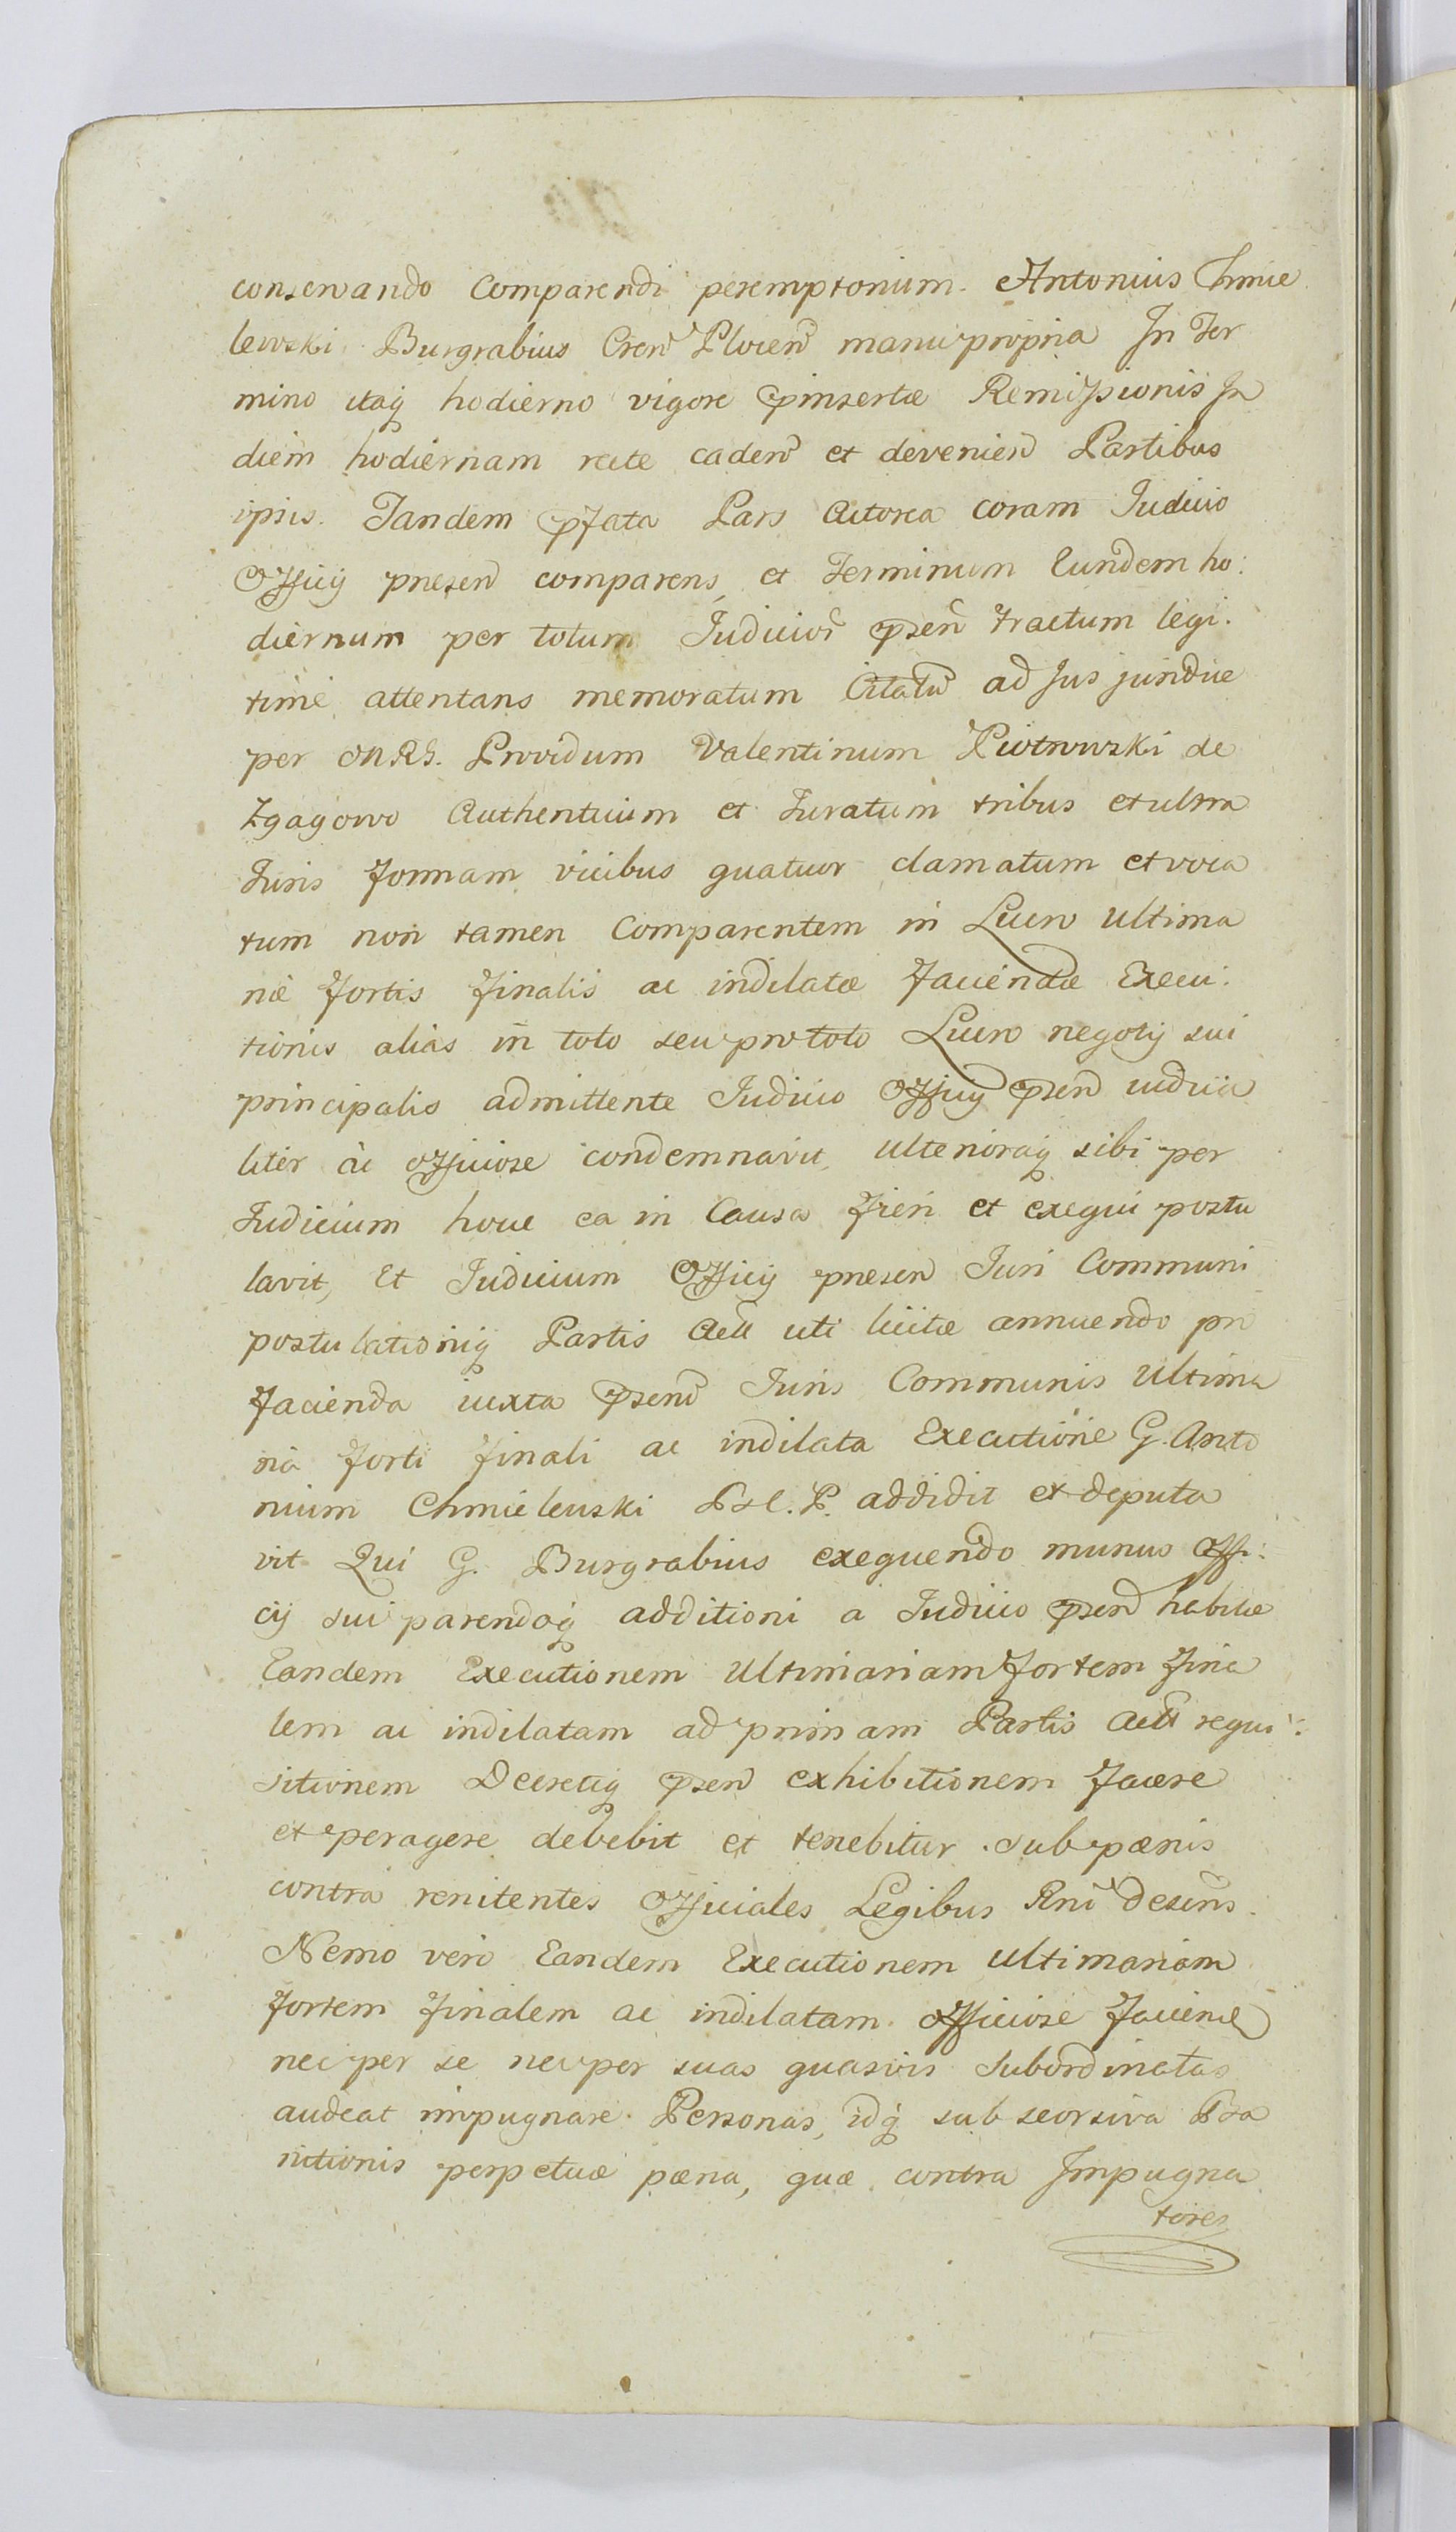 conservando comparendi peremptorium. Antonius Chmie
lewski Burgrabius Cren̄ Plocen̄ manu propria In Ter
mino itaq̨ hodierno vigore p̄insertæ Remissionis In
diem hodiernam recte caden̄ et devenien̄ Partibus
ipsis. Tandem p̄fata Pars Actorea coram Judicio
Officij presen̄ comparens, et Terminum Eundem ho:
diernum per totum Judicior̄ p̄sen̄ tractum legi.
time attentans memoratum Citatū ad Jus juridice
per MRG. Providum Valentinum Piotrowski de
Zgagowo Authenticum et Juratum tribus et ultra
Juris formam vicibus quatuor clamatum et voca
tum non tamen Comparentem in Lucro ultima
riæ fortis finalis ac indilatæ faciendæ Execu:
tionis alias in toto seu pro toto Lucro negotij sui
principalis admittente Judicio Officij p̄sen̄ iudicia
liter ac officiose condemnavit, ulterioraq̨ sibi per
Judicium hocce ea in Causa fieri et exequi postu
lavit, Et Judicium Officij presen̄ Juri Communi
postulationiq̨ Partis Actt uti licitæ annuendo pro
facienda iuxta p̄sen̄ Juris Communis Ultima
ria forti finali ac indilata Executione G. Anto
nium Chmielewski B. C. P. addidit et deputa
vit Qui G. Burgrabius exequendo munus Offi:
cij sui parendoq̨ additioni a Judicio p̄sen̄ habitæ
Eandem Executionem Ultimariam fortem fina
lem ac indilatam ad primam Partis Actt requi:
sitionem Decretiq̨ p̄sen̄ exhibitionem facere
et peragere debebit et tenebitur sub pœnis
contra renitentes Officiales Legibus Rni descris.
Nemo vero Eandem Executionem ultimariam
fortem finalem ac indilatam officiose faciend
nec per se nec per suas quasvis subordinatas
audeat impugnare Personas, idq̨ sub seorsiva Ban
nitionis perpetuæ pœna, quæ contra Impugna
tores